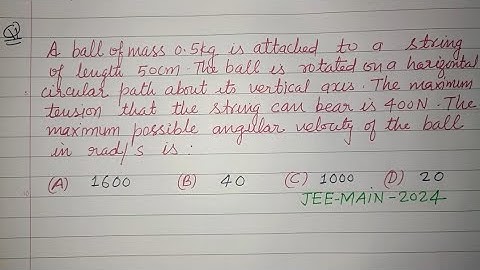 Q
A ball of mass 0.5kg is attached to a string
of length 50cm. The ball is rotated on a harizontal
circular path about its vertical axis. The maximum
tension that the string can bear is 400N. The
maximum possible angular velocity of the ball
in rad/s is :
(A) 1600 (B) 40 (C) 1000 (D) 20
JEE-MAIN-2024